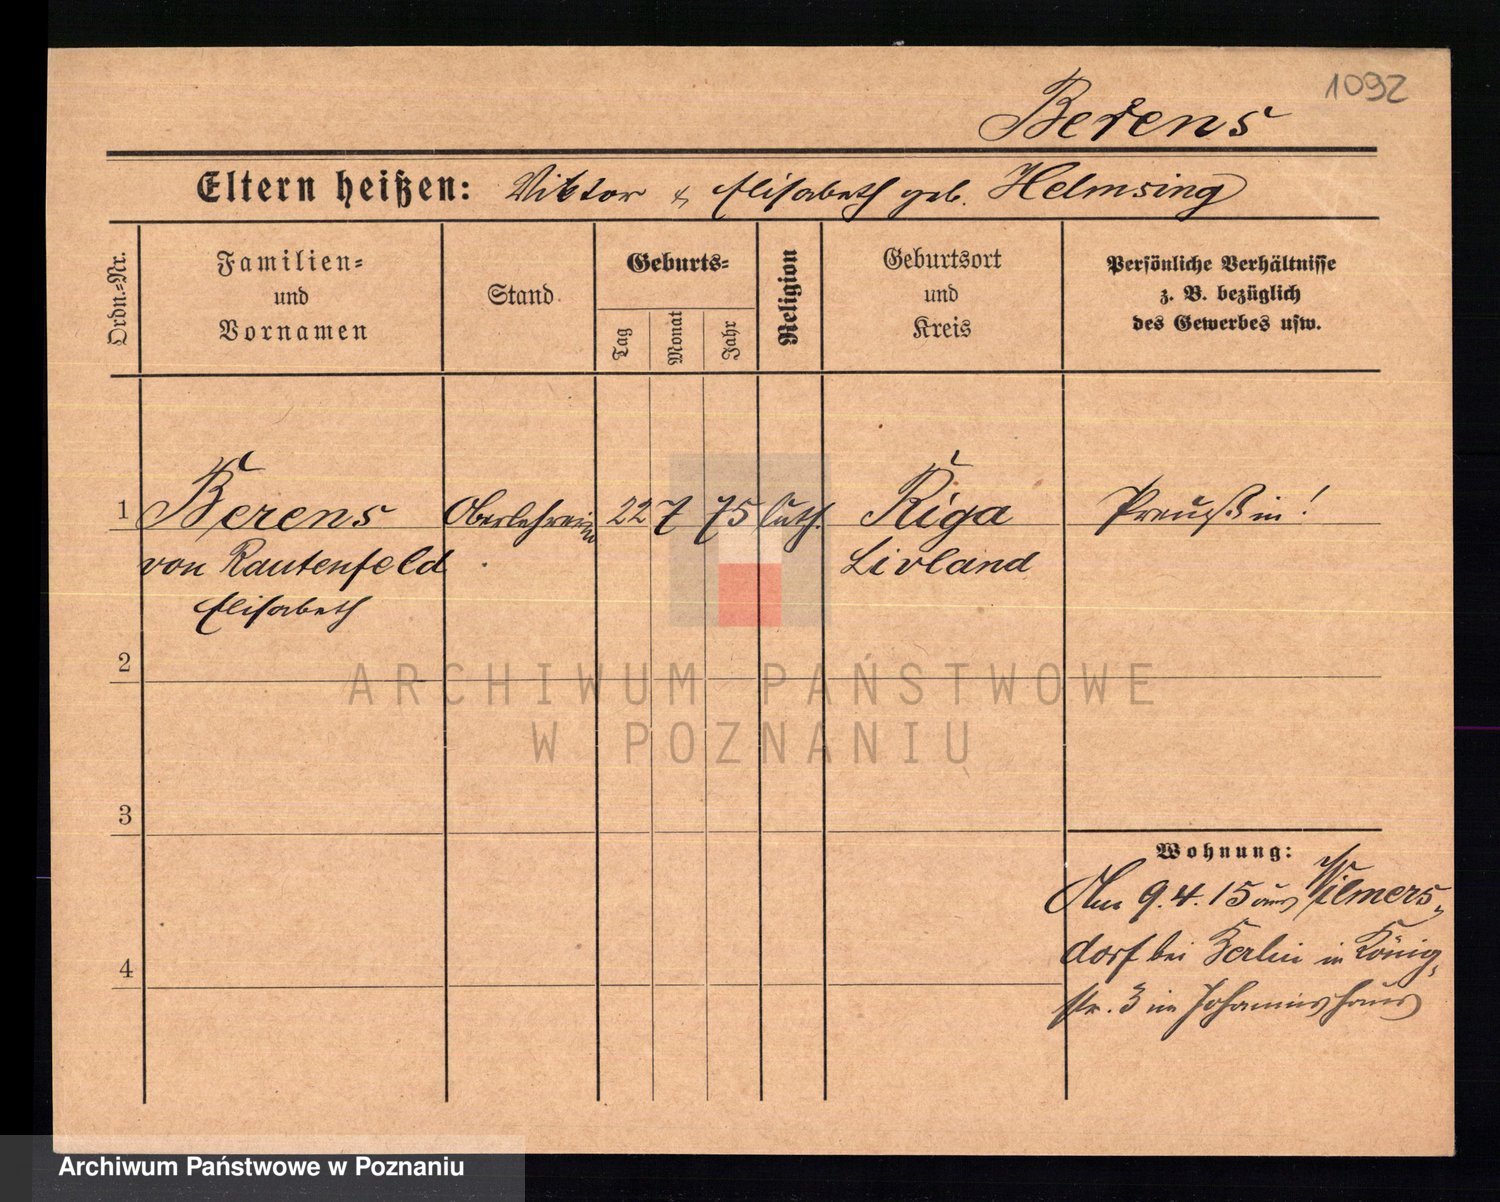 1092
Berens
Eltern heißen: Viktor & Elisabeth geb. Helmsing
Ordn.-Nr.
Familien-
und
Vornamen
Stand
Geburts-
Tag
Monat
Jahr
Religion
Geburtsort
und
Kreis
Persönliche Verhältnisse
z. B. bezüglich
des Gewerbes usw.
1 Berens Oberlehrerin 22 7 75 luth. Riga Preußin!
von Rautenfeld Livland
Elisabeth
2
ARCHIWUM PAŃSTWOWE
W POZNANIU
3
Wohnung:
Am 9.4.15 aus Wilmers-
dorf bei Berlin in König-
4
str. 3 im Johannishaus
Archiwum Państwowe w Poznaniu